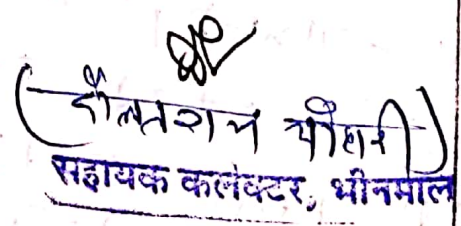 (दौलतराम चौधरी)
सहायक कलेक्टर, भीनमाल